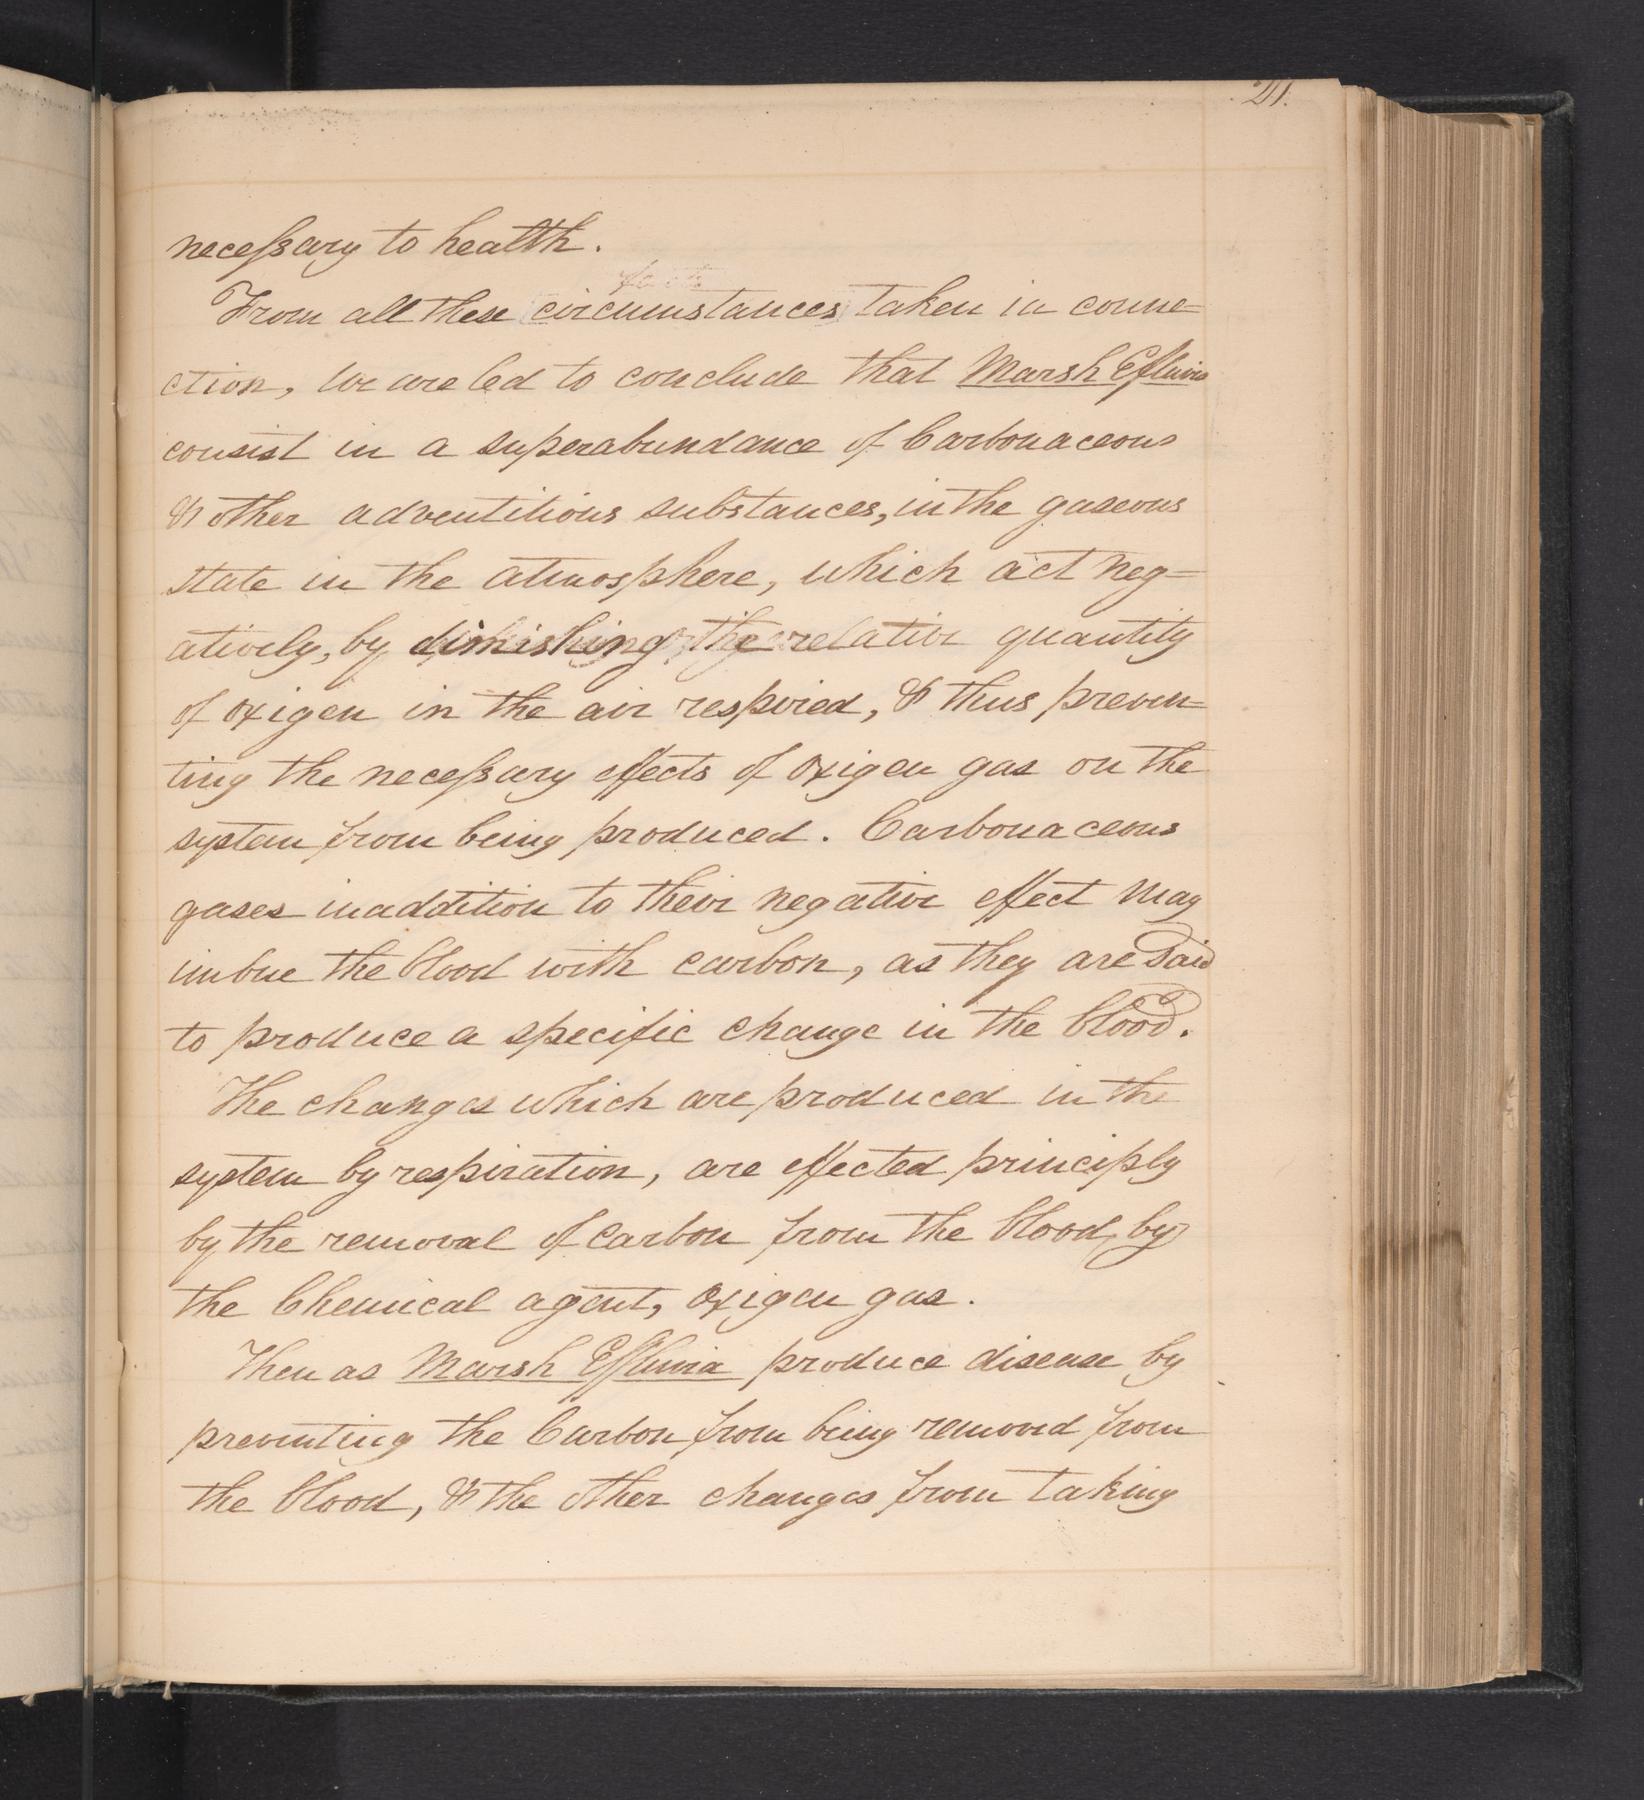 21.
necessary to health.
facts
From all these circumstances taken in conne=
ction, we are led to conclude that Marsh Efluvia
consist in a superabundance of Carbonaceous
& other adventitious substances, in the gaseous
state in the atmosphere, which act neg=
atively, by dimishing the relative quantity
of oxigen in the air respired, & thus preven=
ting the necessary effects of oxigen gas on the
system from being produced. Carbonaceous
gases in addition to their negative effect may
imbue the blood with carbon, as they are said
to produce a specific change in the blood.
The changes which are produced in the
system by respiration, are effected principly
by the removal of carbon from the blood, by
the Chemical agent, oxigen gas.
Then as Marsh Effluvia produce disease by
preventing the Carbon from being removed from
the blood, & the other changes from taking